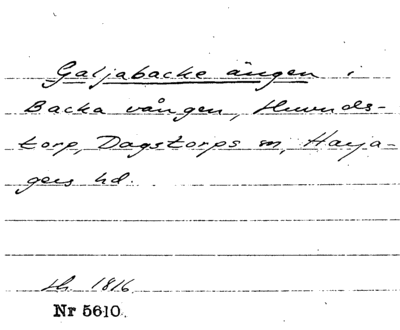 Galjabacke ängen i
Backa vången, Hunds-
torp, Dagstorps sn, Harja-
gers hd.
lh. 1816
Nr 5610.